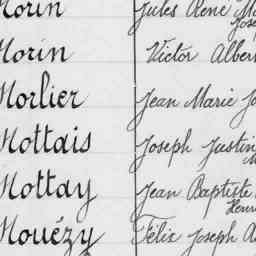 Morin Jules René
Morin Victor Albert
Morlier Jean Marie
Mottais Joseph Justin
Mottay Jean Baptiste
Henri
Mouézy Félix Joseph